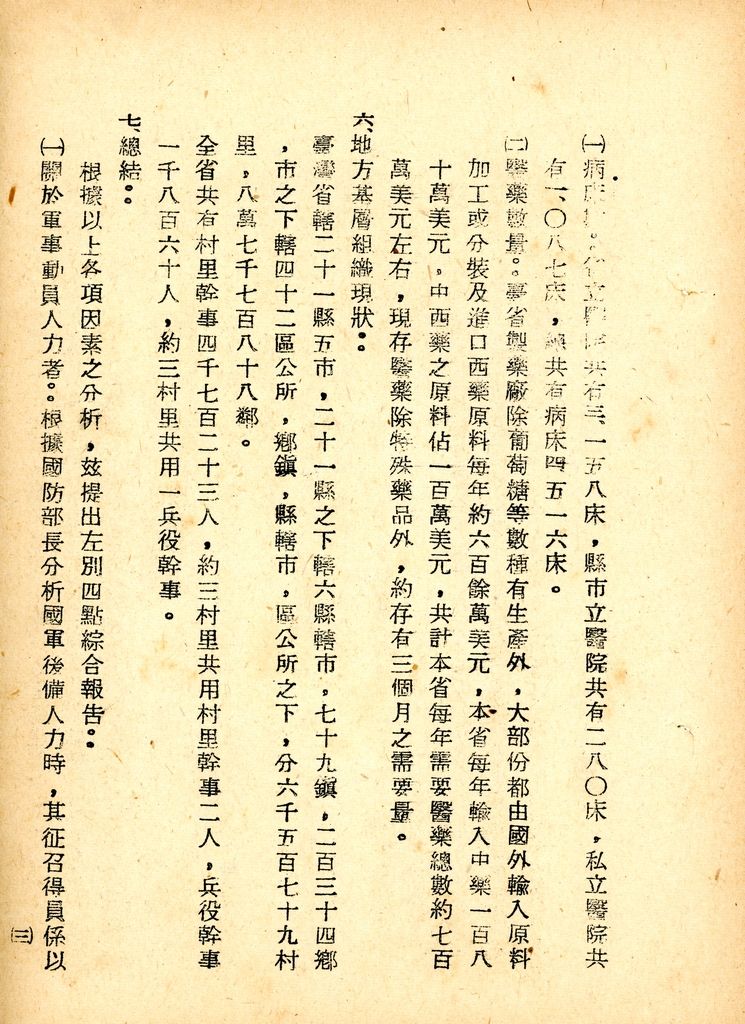 ㈠病床數。省立醫院共有三、一五八床，縣市立醫院共有二八〇床，私立醫院共
有一、〇八七床，總共有病床四五一六床。
㈡醫藥數量。。臺省製藥廠除葡萄糖等數種有生產外，大部份都由國外輸入原料
加工或分裝及進口西藥原料每年約六百餘萬美元，本省每年輸入中藥一百八
十萬美元，中西藥之原料佔一百萬美元，共計本省每年需要醫藥總數約七百
萬美元左右，現存醫藥除特殊藥品外，約存有三個月之需要量。
六、地方基層組織現狀：
臺灣省轄二十一縣五市，二十一縣之下轄六縣轄市，七十九鎮，二百三十四鄉
，市之下轄四十二區公所，鄉鎮，縣轄市，區公所之下，分六千五百七十九村
里，八萬七千七百八十八鄰。
全省共有村里幹事四千七百二十三人，約三村里共用村里幹事二人，兵役幹事
一千八百六十人，約三村里共用一兵役幹事。
七、總結：
根據以上各項因素之分析，玆提出左別四點綜合報告：
㈠關於軍事動員人力者：根據國防部長分析國軍後備人力時，其征召得員係以
㈢